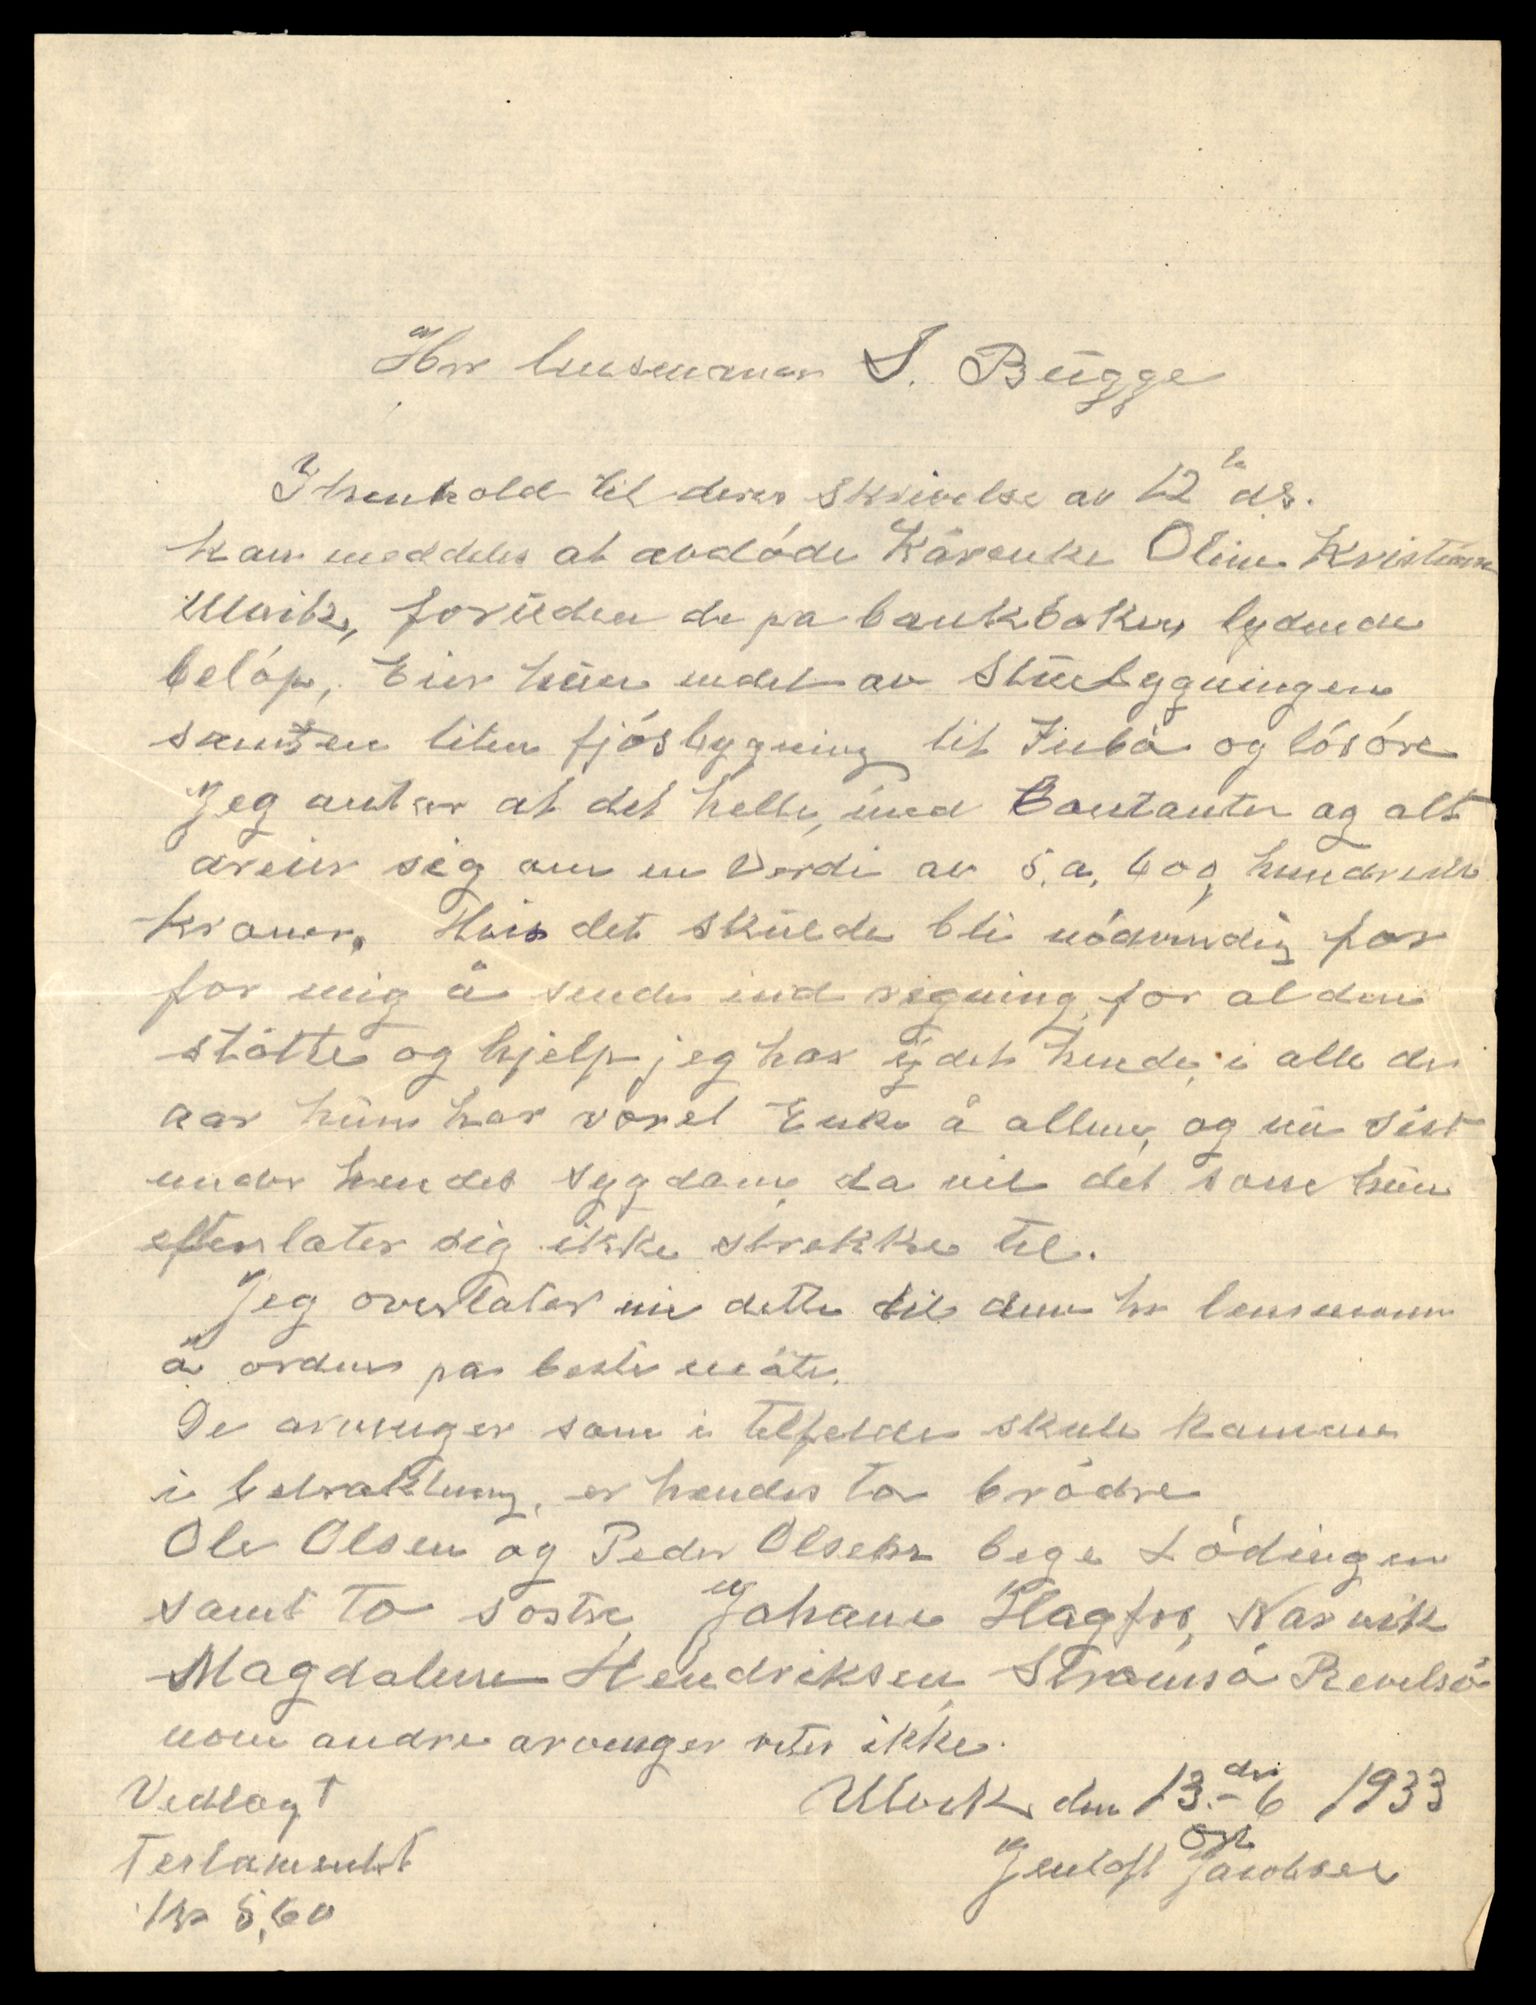 Hrr lensmann S. Bugge
I henhold til deres skrivelse av 12te ds.
kan meddeles at avdøde Kårenke Oline Kristianse
Ulvik, foruden de pa bankboken lydende
beløp, Eier hun endel av Stuebygningen
samt en liten fjøsbygning litt Inbo og løsøre
Jeg antar at det helle, med Contanter og alt
dreier sig om en Verdi av 5.a. 600, hundrede
kroner. Hvis det skulde bli nødvendig for
for mig å sende ind regning for al den
støtte og hjelp jeg har ydet hende, i alle de
aar hun har været Enke å allene, og nu sist
under hendes sygdom, da vil det som hun
efterlater sig ikke strekke til.
Jeg overlater nu dette til dem hr lensmann
å ordne pa beste måte.
De arvinger som i tilfelde skule komme
i betraktning, er hendes to brødre
Ole Olsen og Peder Olsen bege Lødingen
samt to søstre, Johane Hagfor, Narvik
Magdalene Hendriksen Strømsø Revelsø
noen andre arvinger vetes ikke.
Ulvik den 13.de-6 1933
Jentoft Jacobsen
Vedlagt
Testamentet
Kr 5,60